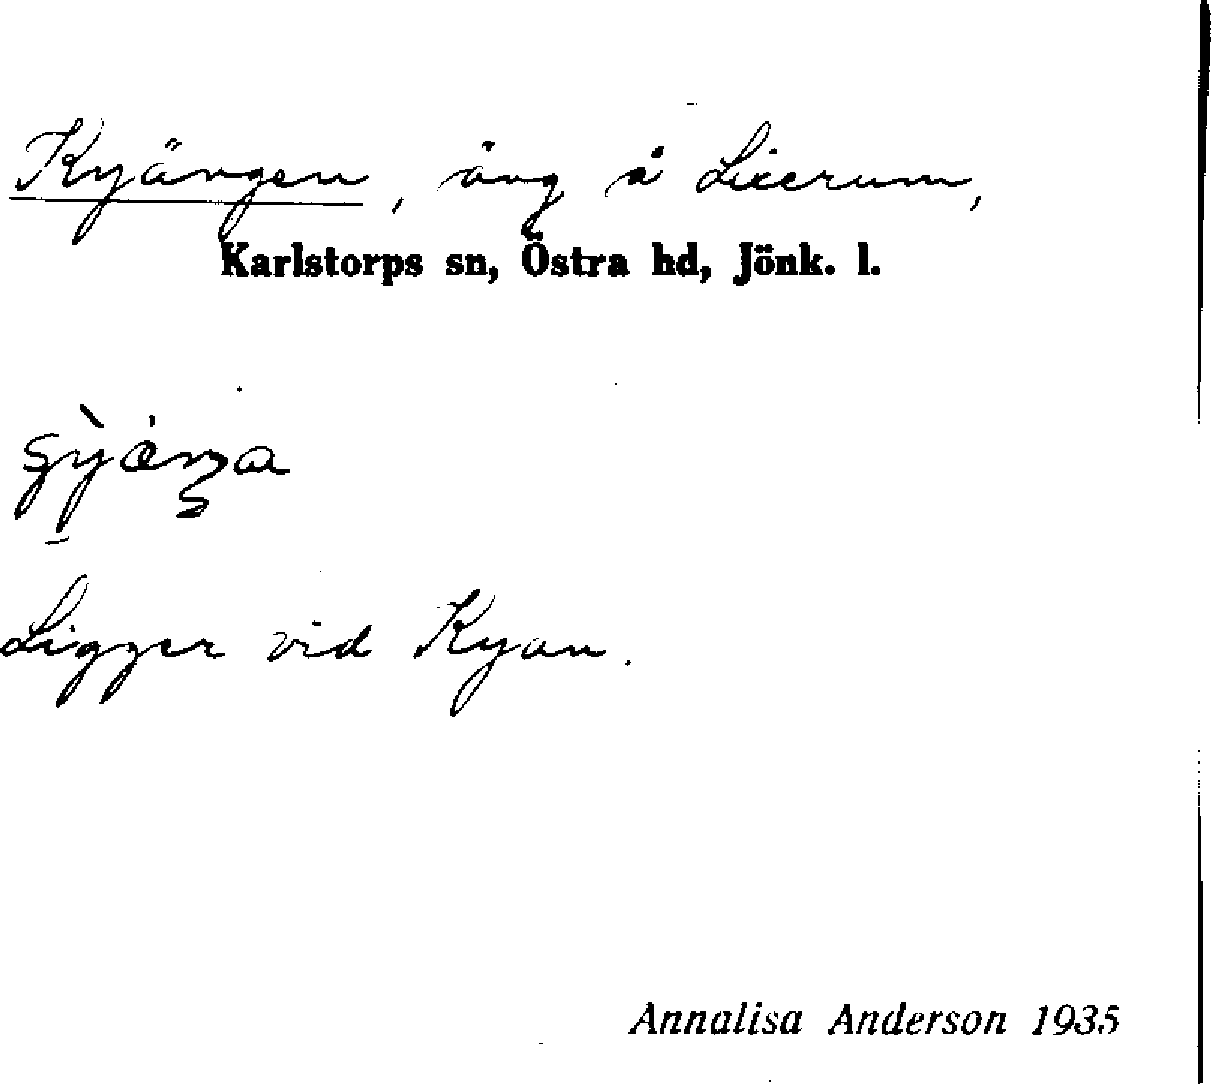 Kyängen, äng å Lixerum,
Karlstorps sn, Östra hd, Jönk. l.
Ligger vid Kyan.
Annalisa Anderson 1935